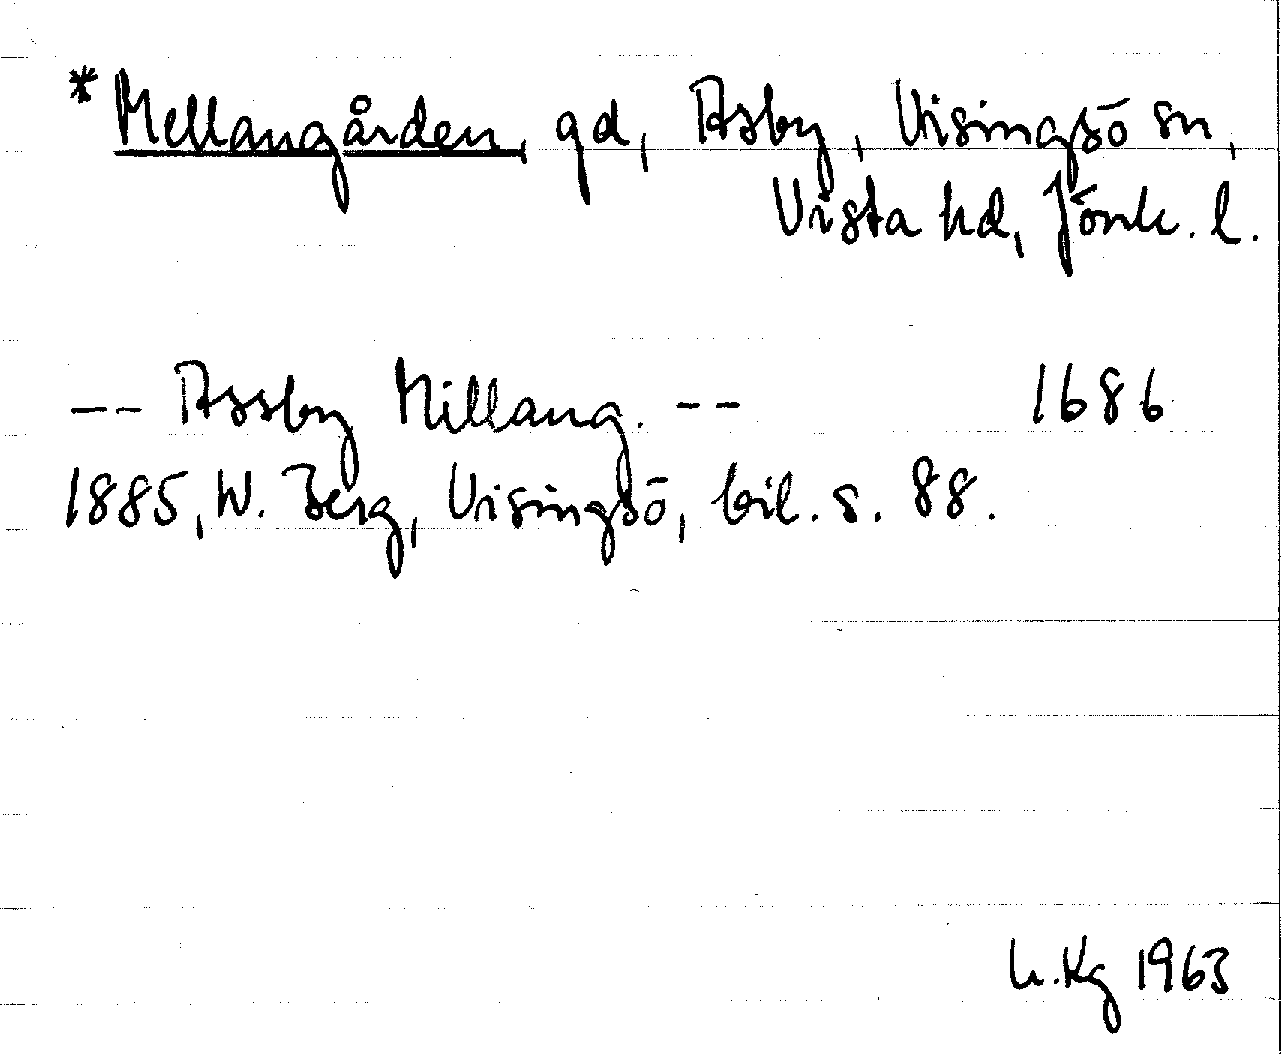 * Mellangården, gd, Asby, Visingsö sn,
Vista hd, Jönk. l.
-- Assby Millang. -- 1686
1885, W. Berg, Visingsö, bil. s. 88.
h.Kg 1963